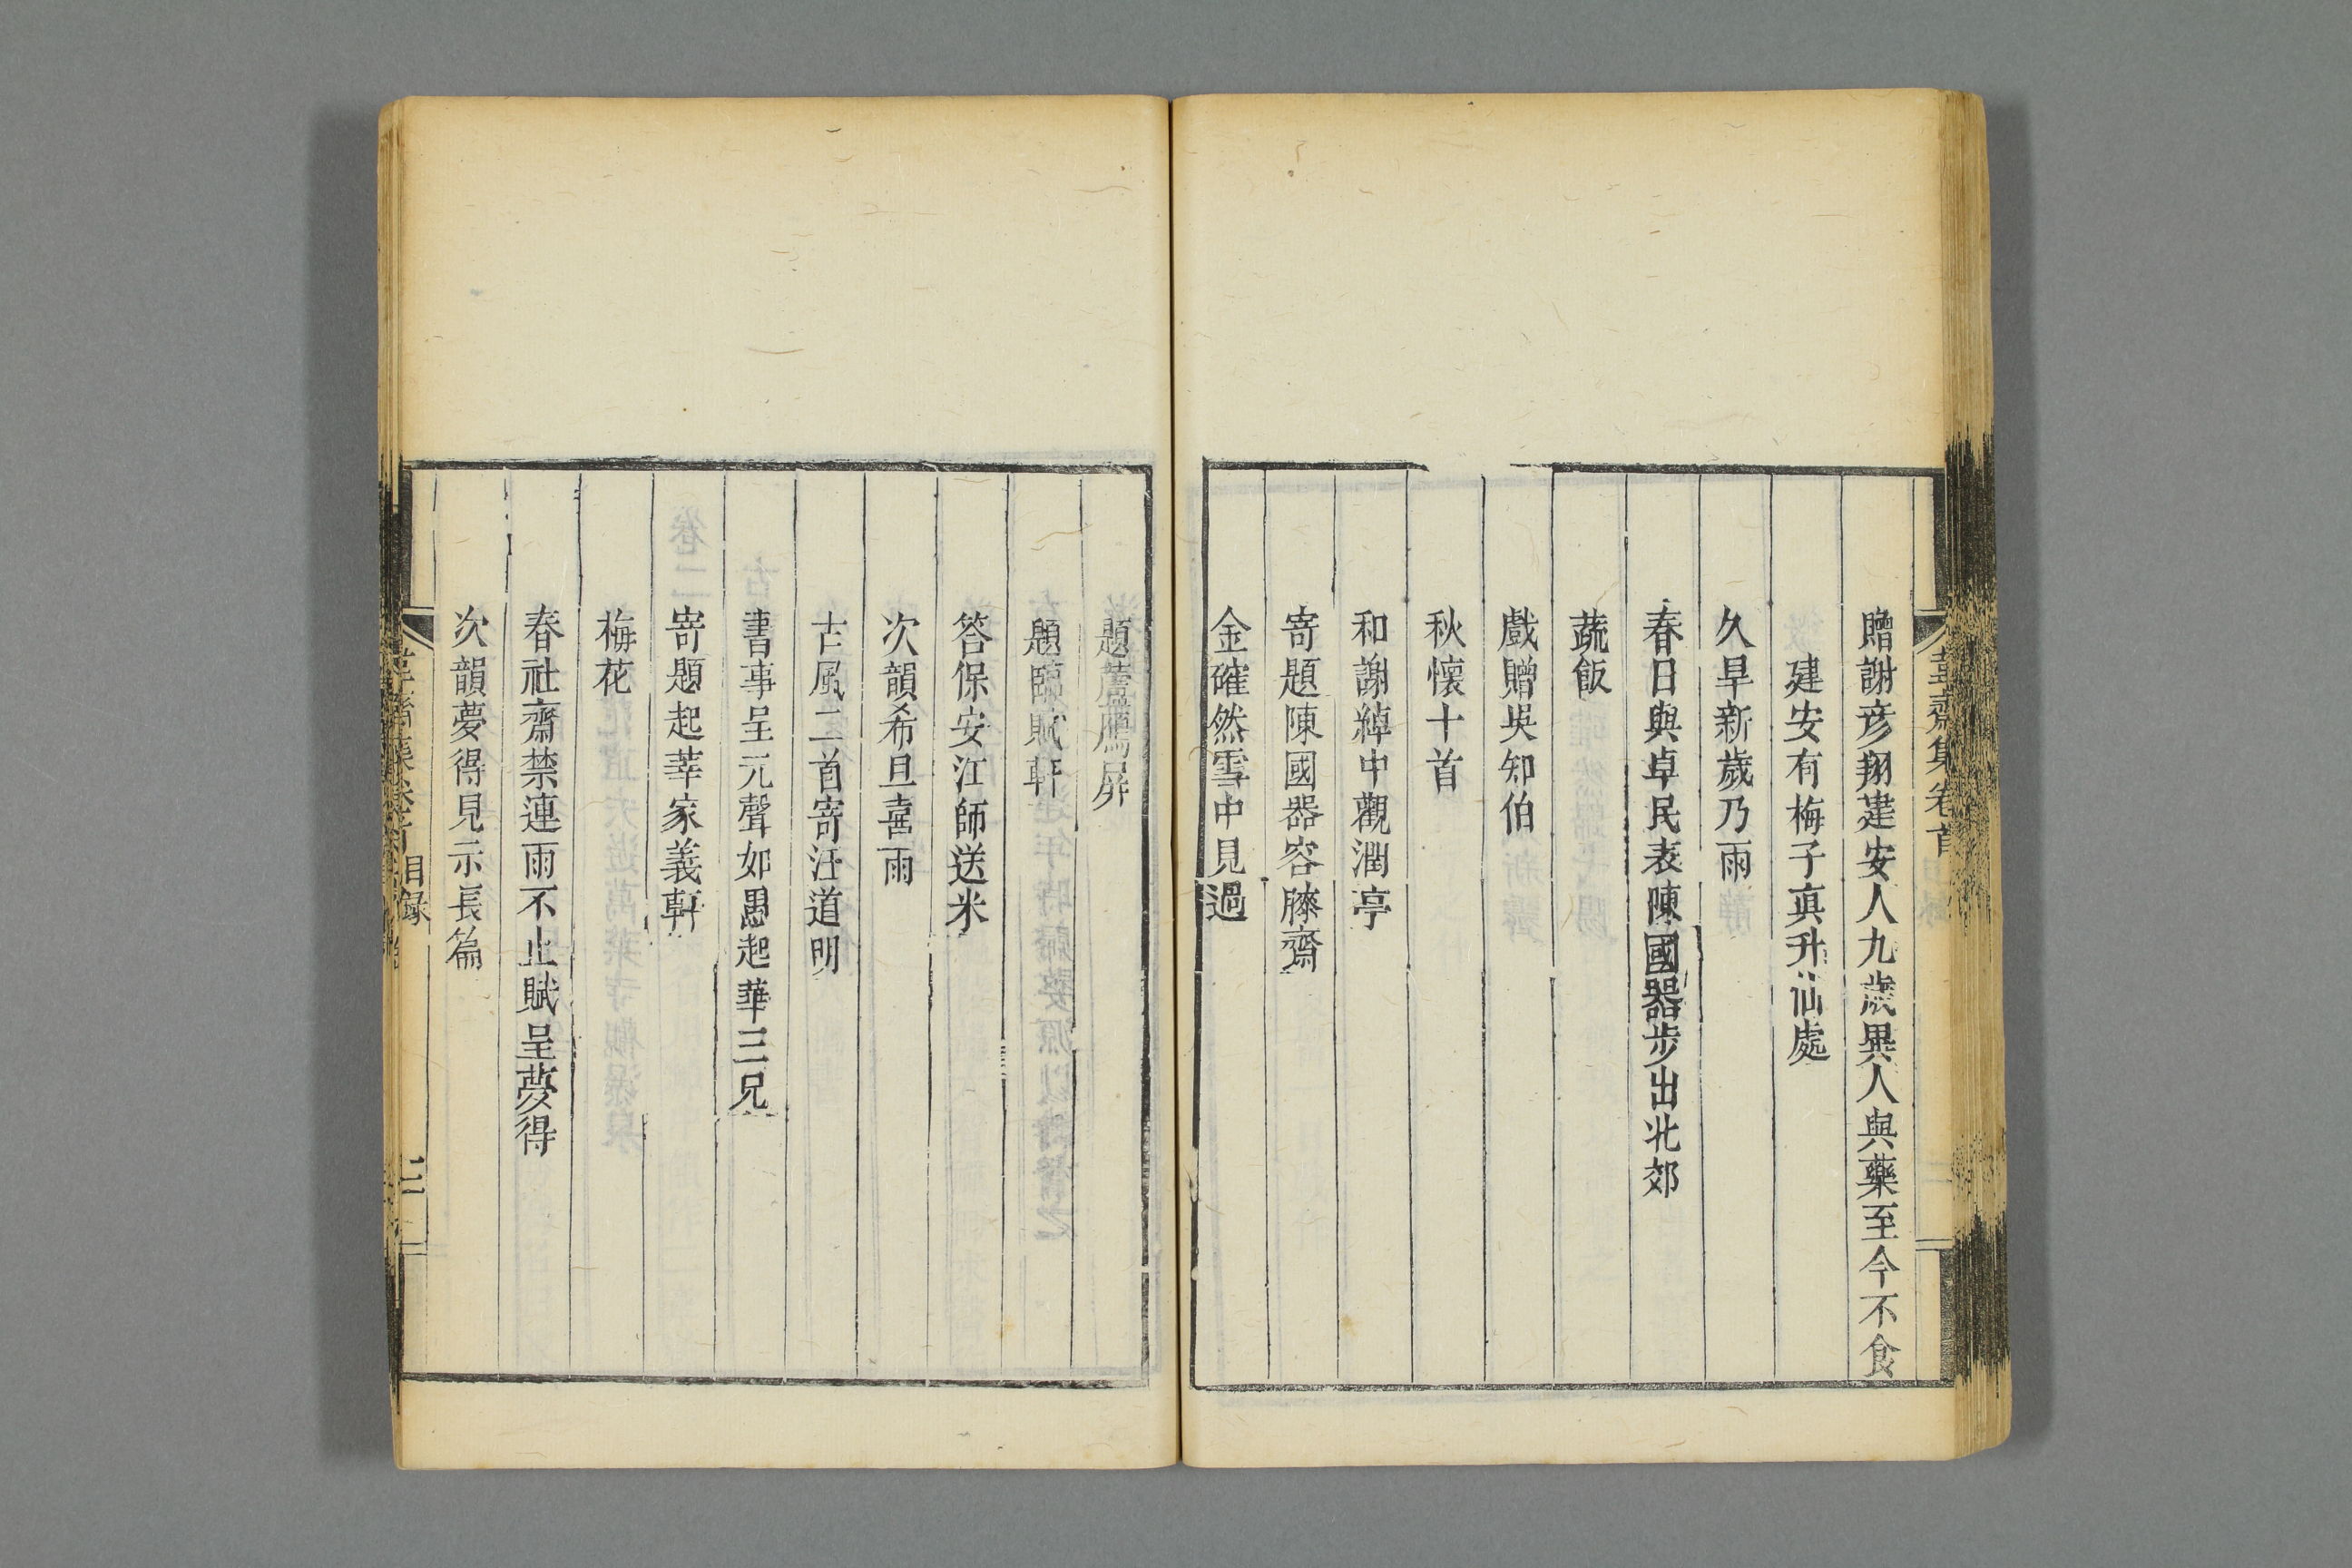 韋齋集卷首
贈謝彦翔建安人九歲異人與藥至今不食
建安有梅子真升仙處
久旱新歲乃雨
春日與卓民表陳國器步出北郊
蔬飯
戲贈吳知伯
秋懷十首
和謝綽中觀潤亭
寄題陳國器容膝齋
金確然雪中見過
題蘆鴈屏
題臨賦軒
答保安江師送米
次韻希旦喜雨
古風二首寄汪道明
書事呈元聲如愚起華三兄
寄題起莘家義軒
梅花
春社齋禁連雨不止賦呈夢得
次韻夢得見示長篇
目録